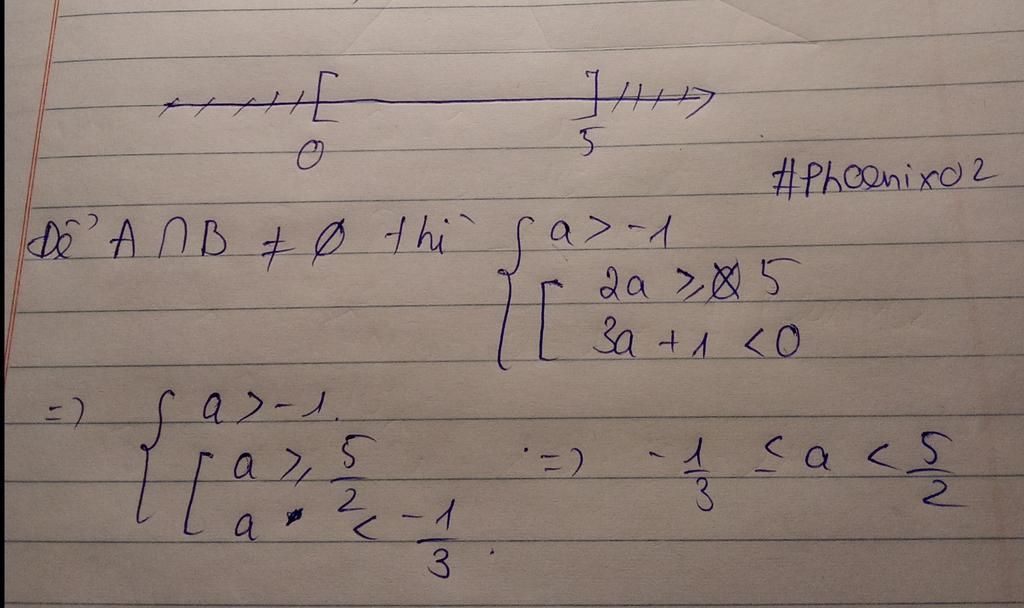 0 5
#Phoenix02
Để A ∩ B ≠ ∅ thì { a > -1
[ 2a ≥ 5
3a + 1 < 0
=> { a > -1.
[ a ≥ 5/2
a < -1/3.
=> -1/3 ≤ a < 5/2